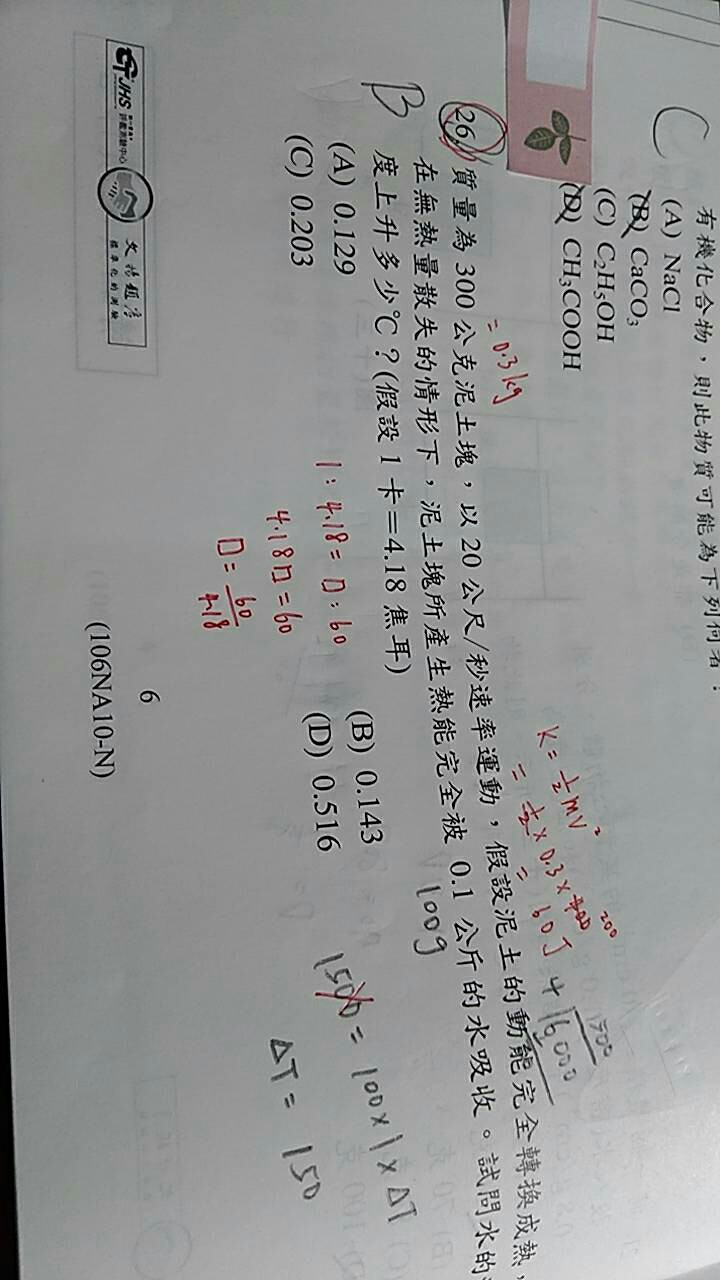 有機化合物，則此物質可能為下列何者？
C
(A) NaCl
(B) CaCO₃
(C) C₂H₅OH
(D) CH₃COOH
= 0.3 kg
K = ½mv²
= ½ × 0.3 × 400 200
= 60 J
26. 質量為 300 公克泥土塊，以 20 公尺/秒速率運動，假設泥土的動能完全轉換成熱，
在無熱量散失的情形下，泥土塊所產生熱能完全被 0.1 公斤的水吸收。試問水的
100g
B
度上升多少℃？(假設 1 卡＝4.18 焦耳)
(A) 0.129
(B) 0.143
(C) 0.203
(D) 0.516
1 : 4.18 = □ : 60
4.18□ = 60
□ = 60/4.18
= 100 × 1 × ΔT
ΔT = 150
JHS
6
(106NA10-N)